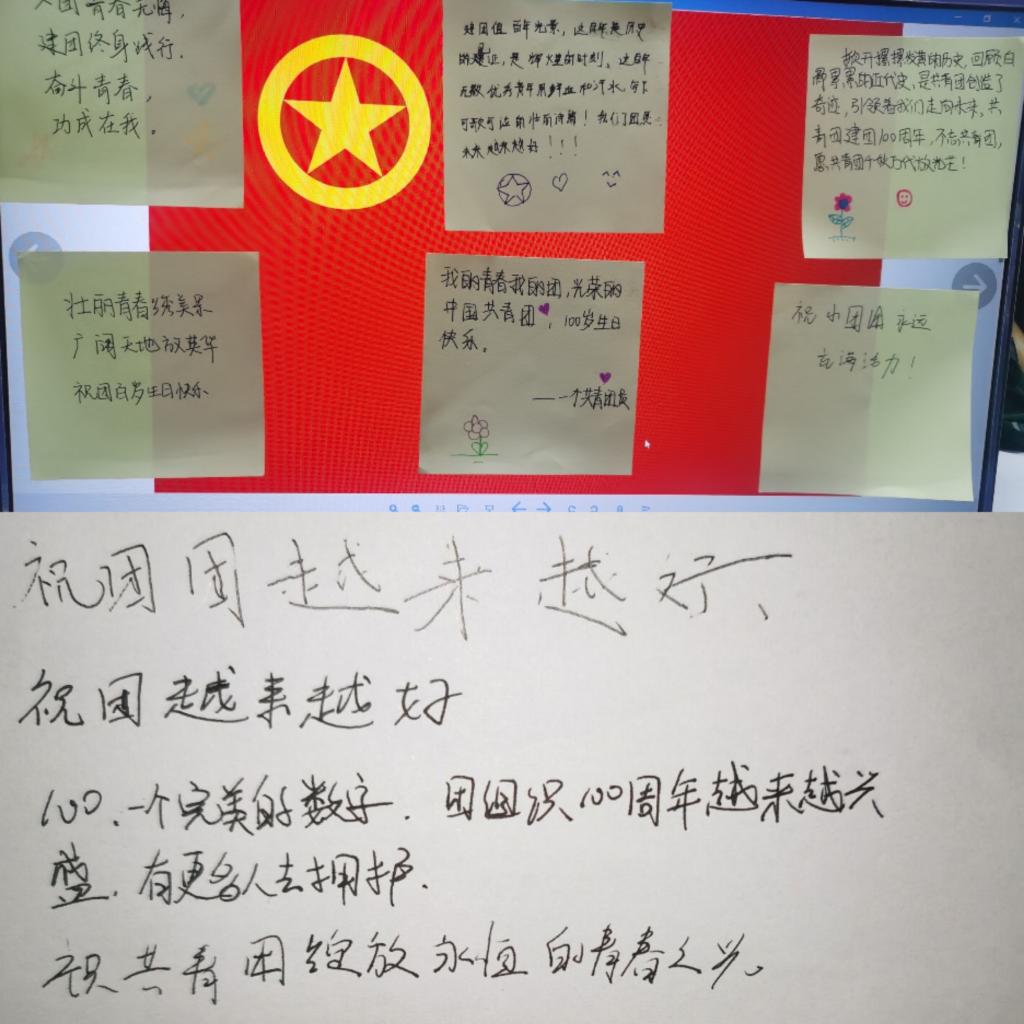 入团青春无悔,
建团终身践行.
奋斗青春,
功成在我。
建团值百年光景,这百年是历史
的见证,是辉煌的时刻。这百年
无数优秀青年用鲜血和汗水,写下
可歌可泣的壮丽诗篇!我们团员
未来越来越好!!!
掀开摞摞发黄的历史,回顾白
累累的近代史,是共青团创造了
奇迹,引领着我们走向未来。共
青团建团100周年,不忘共青团,
愿共青团千秋万代放光芒!
壮丽青春绕美景
广阔天地放英华
祝团百岁生日快乐
我的青春我的团,光荣的
中国共青团,100岁生日
快乐。
——一个共青团员
祝中国团永远
充满活力!
祝团团越来越好、
祝团越来越好
100、一个完美的数字.团组织100周年越来越兴
盛.有更多人去拥护.
祝共青团绽放永恒的青春之光。